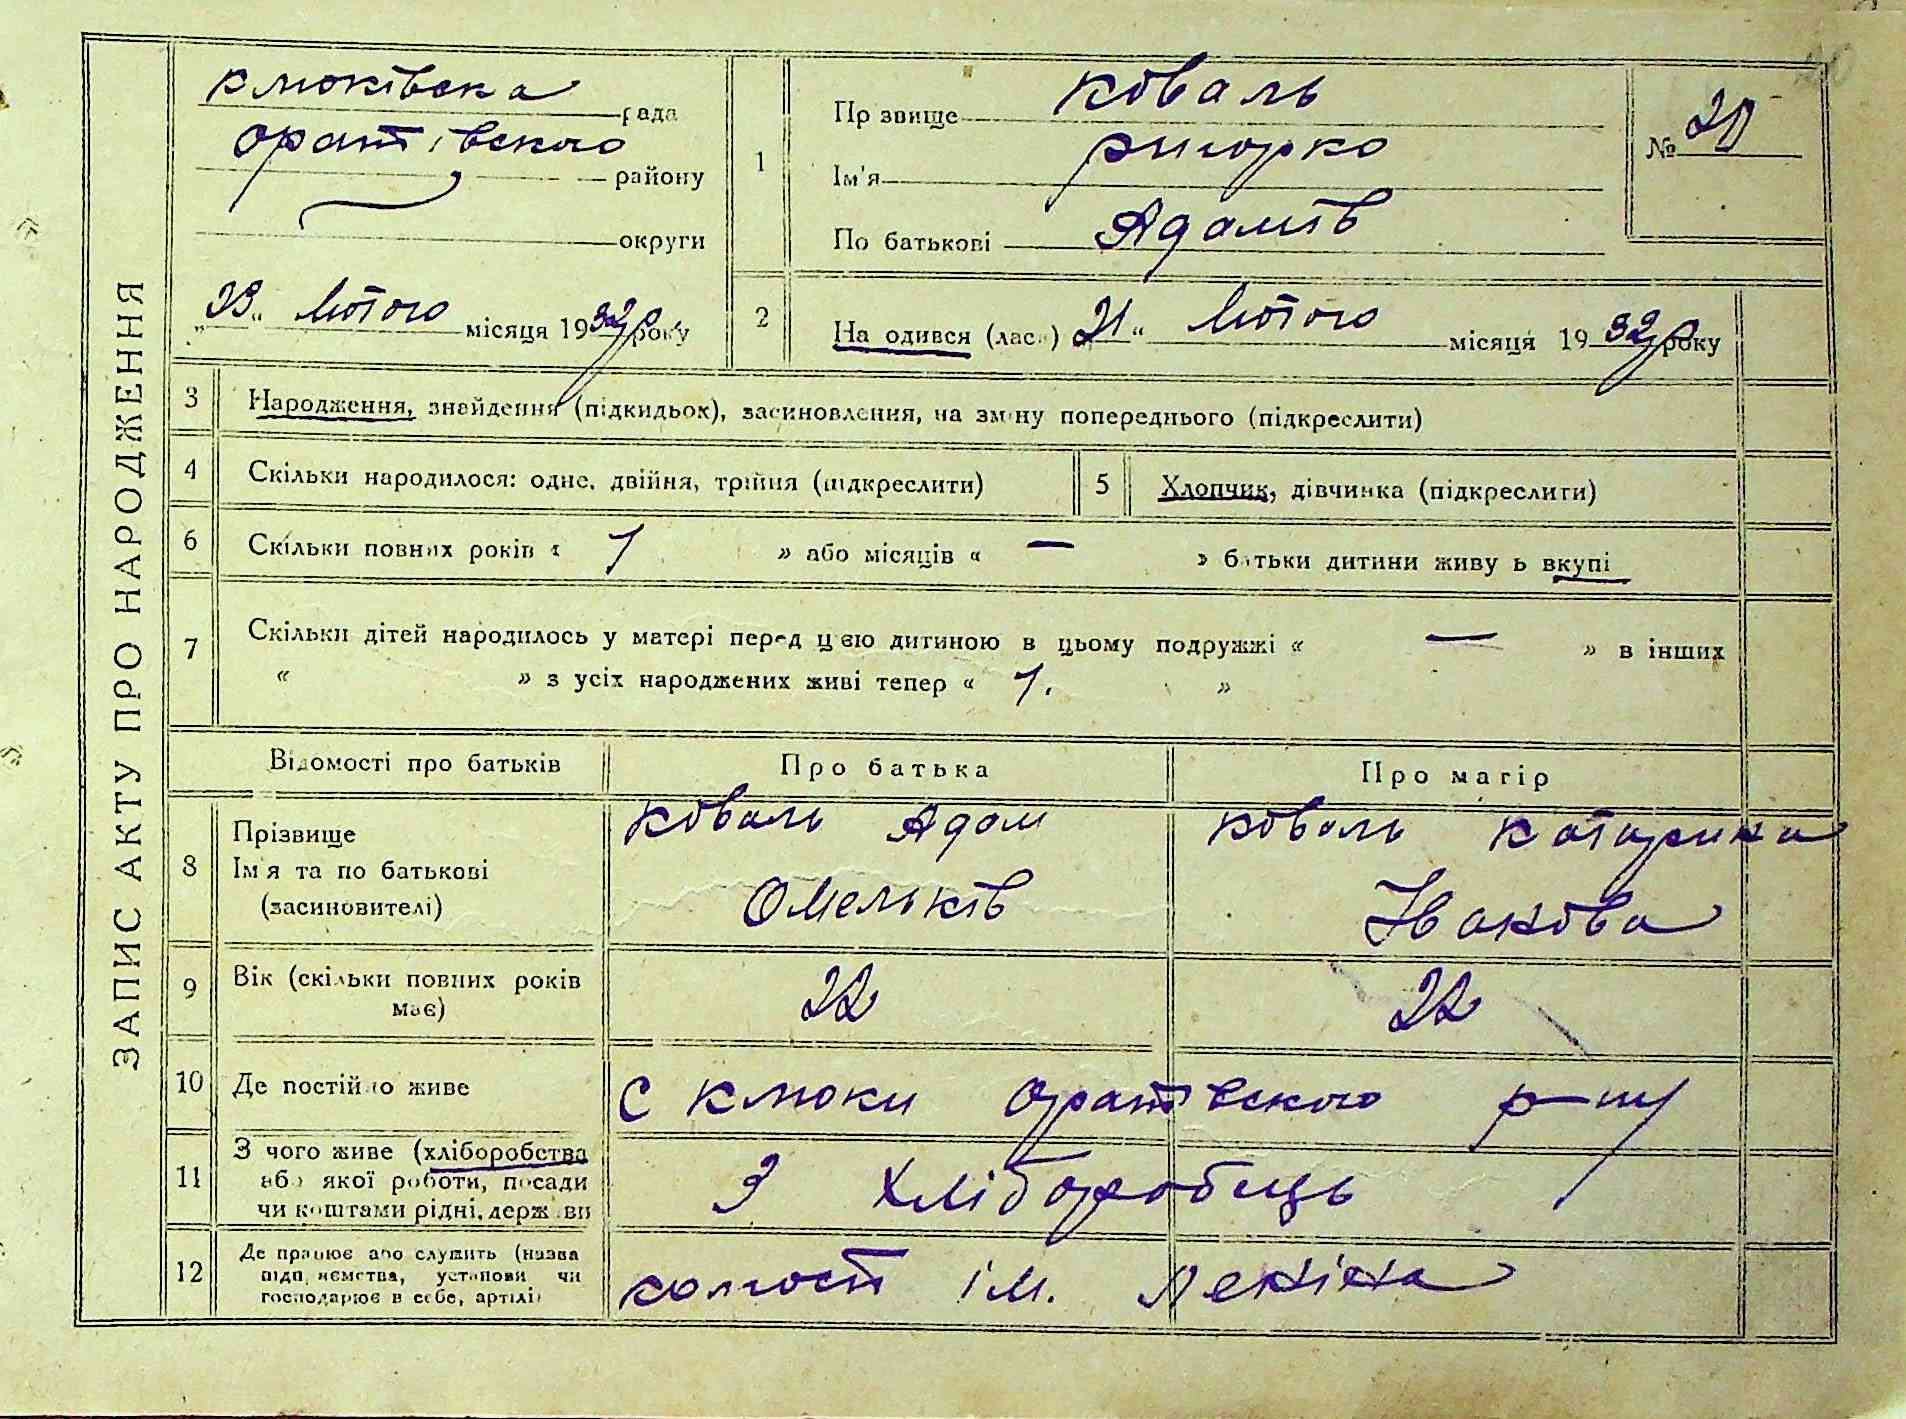 ЗАПИС АКТУ ПРО НАРОДЖЕННЯ
Клюківска рада
Оратівского району
округи
„23“ Лютого місяця 1932 р. року
1
Прізвище Коваль
Ім'я Ригорко
По батькові Адамів
№ 20
2
Народився (лась) 21“ Лютого місяця 1932 р року
3 Народження, знайдення (підкидьок), засиновлення, на зміну попереднього (підкреслити)
4 Скільки народилося: одне, двійня, трійня (підкреслити)
5 Хлопчик, дівчинка (підкреслити)
6 Скільки повних років « 1 » або місяців « — » батьки дитини живуть вкупі
7 Скільки дітей народилось у матері перед цією дитиною в цьому подружжі « — » в інших
« » з усіх народжених живі тепер « 1. »
Відомості про батьків Про батька Про матір
8 Прізвище Ім'я та по батькові (засиновителі)
Коваль Адам
Омельків
Коваль Катарина
Іванова
9 Вік (скільки повних років має) 22 22
10 Де постійно живе с Клюки Оратівского р-ну
11 З чого живе (хліборобства
або якої роботи, посади
чи коштами рідні, держави
З Хліборобець
12 Де працює або служить (назва
підприємства, установи чи
господарює в себе, артілі)
колгост ім. Леніна